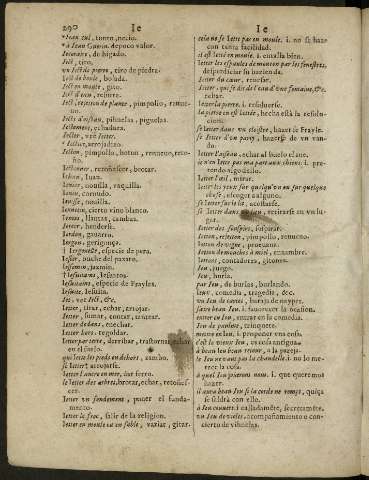 290 Ie
Ie
Iean cul, tonto, necio.
à Iean Guerin. de poco valor.
Iecoraire, de higado.
Iect, tiro.
vn Iect de pierre, tiro de piedra.
Iect de boule, bolada.
Iect en monte, giro.
Iect d'eau,
Iect, rejetton de plante, pimpollo, renue-
uo.
Iects d'oiseau, pihuelas, piguelas.
Iectement, echadura.
Iecter, vee Ietter.
Iecteur, arrojadizo.
Iecton, pimpollo, boton, renueuo, reto-
ño.
Iectonner, retoñescer, brotar.
Iehan, Iuan.
Ienisse, nouilla, vaquilla.
Iennin, cornudo.
Ienisse, nouilla.
Ienneton, cierto vino blanco.
Ientes, llantas, cambas.
Ierce, henderse.
Iergon, gerigonça.
Iesier, buche del paxaro.
Iesemin, jazmin.
Iesuitains, especie de Frayles.
Iesuite, Iesuita.
Iet, vee Iect, &c.
Ietter, tirar, echar, arrojar.
Ietter, sumar, contar, arrojar.
Ietter dedans, enechar.
Ietter hors, regoldar.
Ietter par terre, derribar, trastornar, echar
en el suelo.
qui iette les pieds en dehors, zambo.
se ietter, arrojarse.
Ietter l'ancre en mer, dar ferro.
se ietter des arbres, brotar, echar, retoñes-
cer.
Ietter vn fondement, poner el funda-
mento.
Ietter le froc, salir de la religion.
Ietter en moule ou en sable, vaziar, gitar.
cela ne se iette pas en moule. i. no se haze
con tanta facilidad.
il est ietté en moule. i. entalla bien.
Ietter les espaules de mouton par les fenestres,
desperdiciar su hazienda.
Ietter du cœur, reuesar.
Ietter, qui se dit de l'eau d'vne fontaine, &c.
echar.
Ietter la pierre. i. resoluerse.
la pierre en est iettée, hecha està la resolu-
cion.
se ietter dans vn cloistre, hazer se Frayle.
se Ietter d'vn party, hazerse de vn van-
do.
Ietter l'oiseau, echar al buelo el aue.
ie n'en iette pas ma part aux chiens. i. pre-
tendo algo dello.
Ietter l'œil, mirar.
Ietter les yeux sur quelqu'vn ou sur quelque
chose, escoger alguno.
se ietter sur le lit, acostarse.
se ietter dans vn lieu, retirarse en vn lu-
gar.
Ietter des souspirs, sospirar.
Ietton, rejetton, pimpollo, renueuo.
Ietton de vigne, prouana.
Ietton de mouches à miel, enxambre.
Iettons, contadores, gitones.
Ieu, juego.
Ieu, burla.
par Ieu, de burlas, burlando.
Ieux, comedia, tragedia, &c.
vn Ieu de cartes, baraja de naypes.
faire beau Ieu. i. fauorecer la ocasion.
entrer en Ieu, entrar en la comedia.
Ieu de paulme, trinquete.
mettre en Ieu. i. proponer vna cosa.
c'est vn vieux Ieu, es cosa antigua.
à beau Ieu beau retour, a la pareja.
le Ieu ne vaut pas la chandelle. i. no lo me-
rece la cosa.
à quel Ieu joüerons nous. i. que queremos
hazer.
il aura beau Ieu si la corde ne rompt, quiça
se saldrà con ello.
à Ieu couuert. i. calladamente, secretamente.
vn Ieu de violes, acompañamiento o con-
cierto de vihuelas.